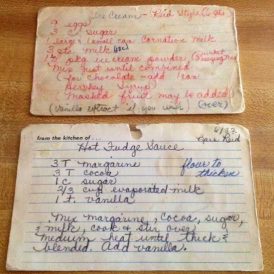 Ice Cream - Reid
9 eggs
3 c. sugar
1 large (tall) can Carnation milk
3 qts milk
1 pkg ice cream powder
Mix just until combined
for chocolate add 1 can
Hershey Syrup
Mashed fruit may be added
(vanilla extract if you wish) (over)
from the kitchen of
Hot Fudge Sauce
3 T margarine flour to
3 T cocoa thicken
1 c sugar
2/3 cup evaporated milk
1 t. vanilla
Mix margarine, cocoa, sugar,
& milk, cook & stir over
medium heat until thick &
blended. Add vanilla.